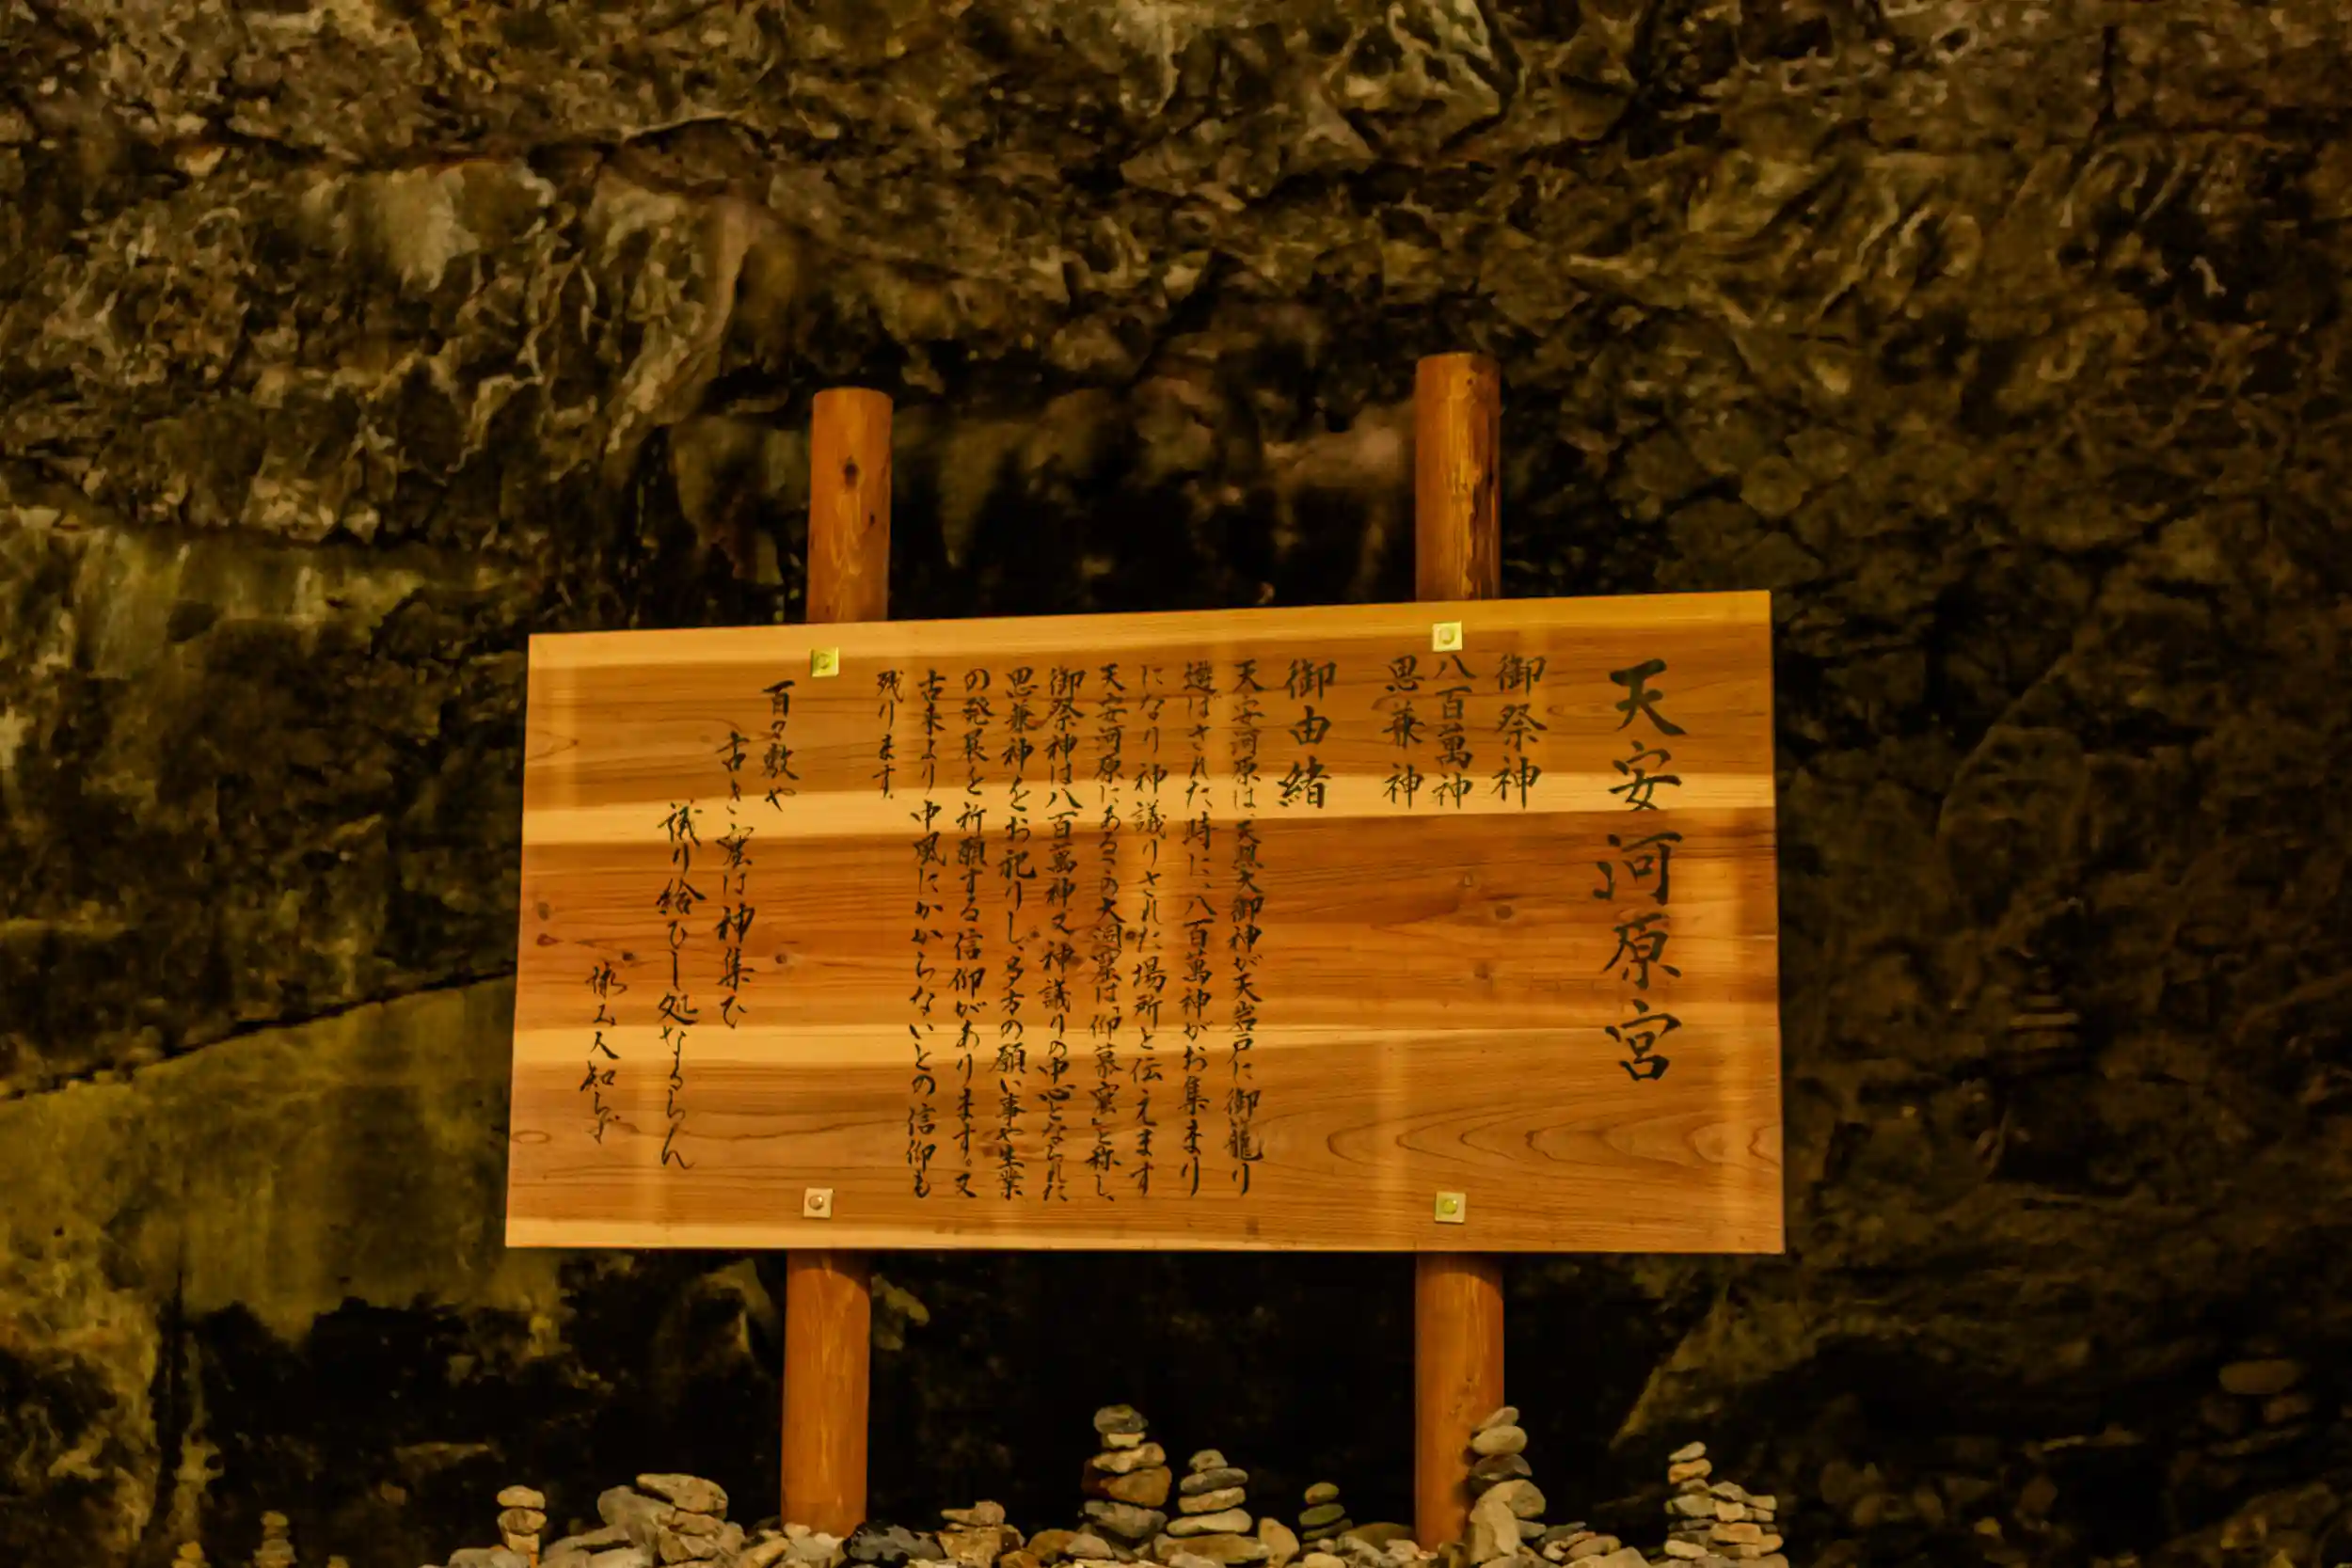 天安河原宮
御祭神
八百萬神
思兼神
御由緒
天安河原は、天照大御神が天岩戸に御籠り
遊ばされた時に、八百萬神がお集まり
になり神議りされた場所と伝えます
天安河原にあるこの大洞窟は「仰慕窟」と称し、
御祭神は八百萬神、又神議りの中心となられた
思兼神をお祀りし、多方の願い事や生業
の発展を祈願する信仰があります。又
古来より中風にかからないとの信仰も
残ります。
百々敷や
古き窟は神集ひ
議り給ひし処なるらん
人知らず